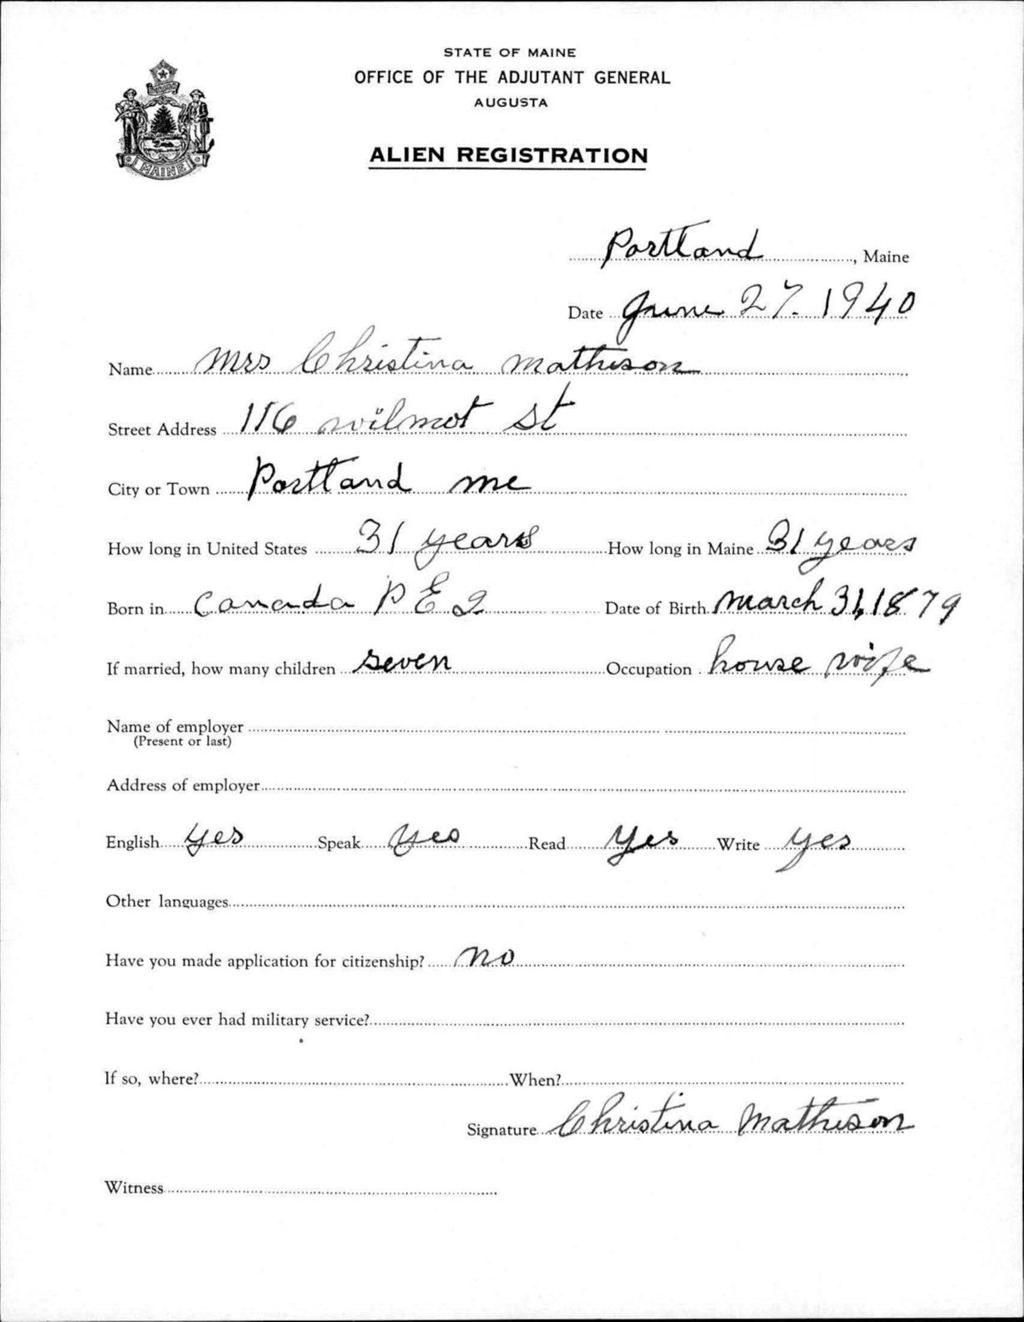 STATE OF MAINE
OFFICE OF THE ADJUTANT GENERAL
AUGUSTA
ALIEN REGISTRATION
MAINE
Portland, Maine
Date June 27. 1940
Name Mrs Christina Matheson
Street Address 116 Wilmot St
City or Town Portland Me
How long in United States 31 years How long in Maine 31 years
Born in Canada P E I Date of Birth March 31, 1879
If married, how many children seven Occupation house wife
Name of employer
(Present or last)
Address of employer
English yes Speak yes Read yes Write yes
Other languages
Have you made application for citizenship? no
Have you ever had military service?
If so, where? When?
Signature Christina Matheson
Witness